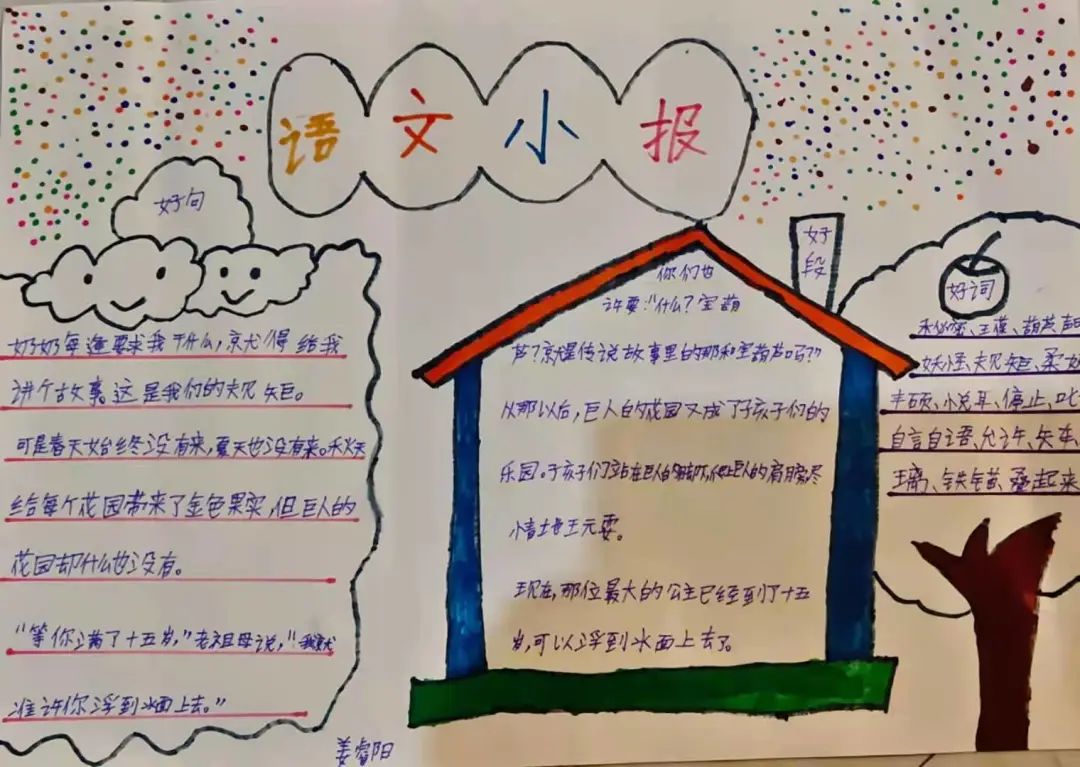 语文小报
好句
奶奶每逢要求我干什么,就得给我
讲个故事。这是我们的规矩。
可是春天始终没有来,夏天也没有来。秋天
给每个花园带来了金色果实,但巨人的
花园却什么也没有。
“等你满了十五岁,”老祖母说,“我就
准许你浮到水面上去。”
姜睿阳
好段
你们也
许要:“什么?宝葫
芦?就是传说故事里的那种宝葫芦吗?”
从那以后,巨人的花园又成了孩子们的
乐园。孩子们站在巨人的脚下,爬上巨人的肩膀,尽
情地玩耍。
现在,那位最大的公主已经到了十五
岁,可以浮到水面上去了。
好词
妖怪、规矩、柔
丰硕、悦耳、停止、叱
自言自语、允许、矢车
璃、铁锚、叠起来